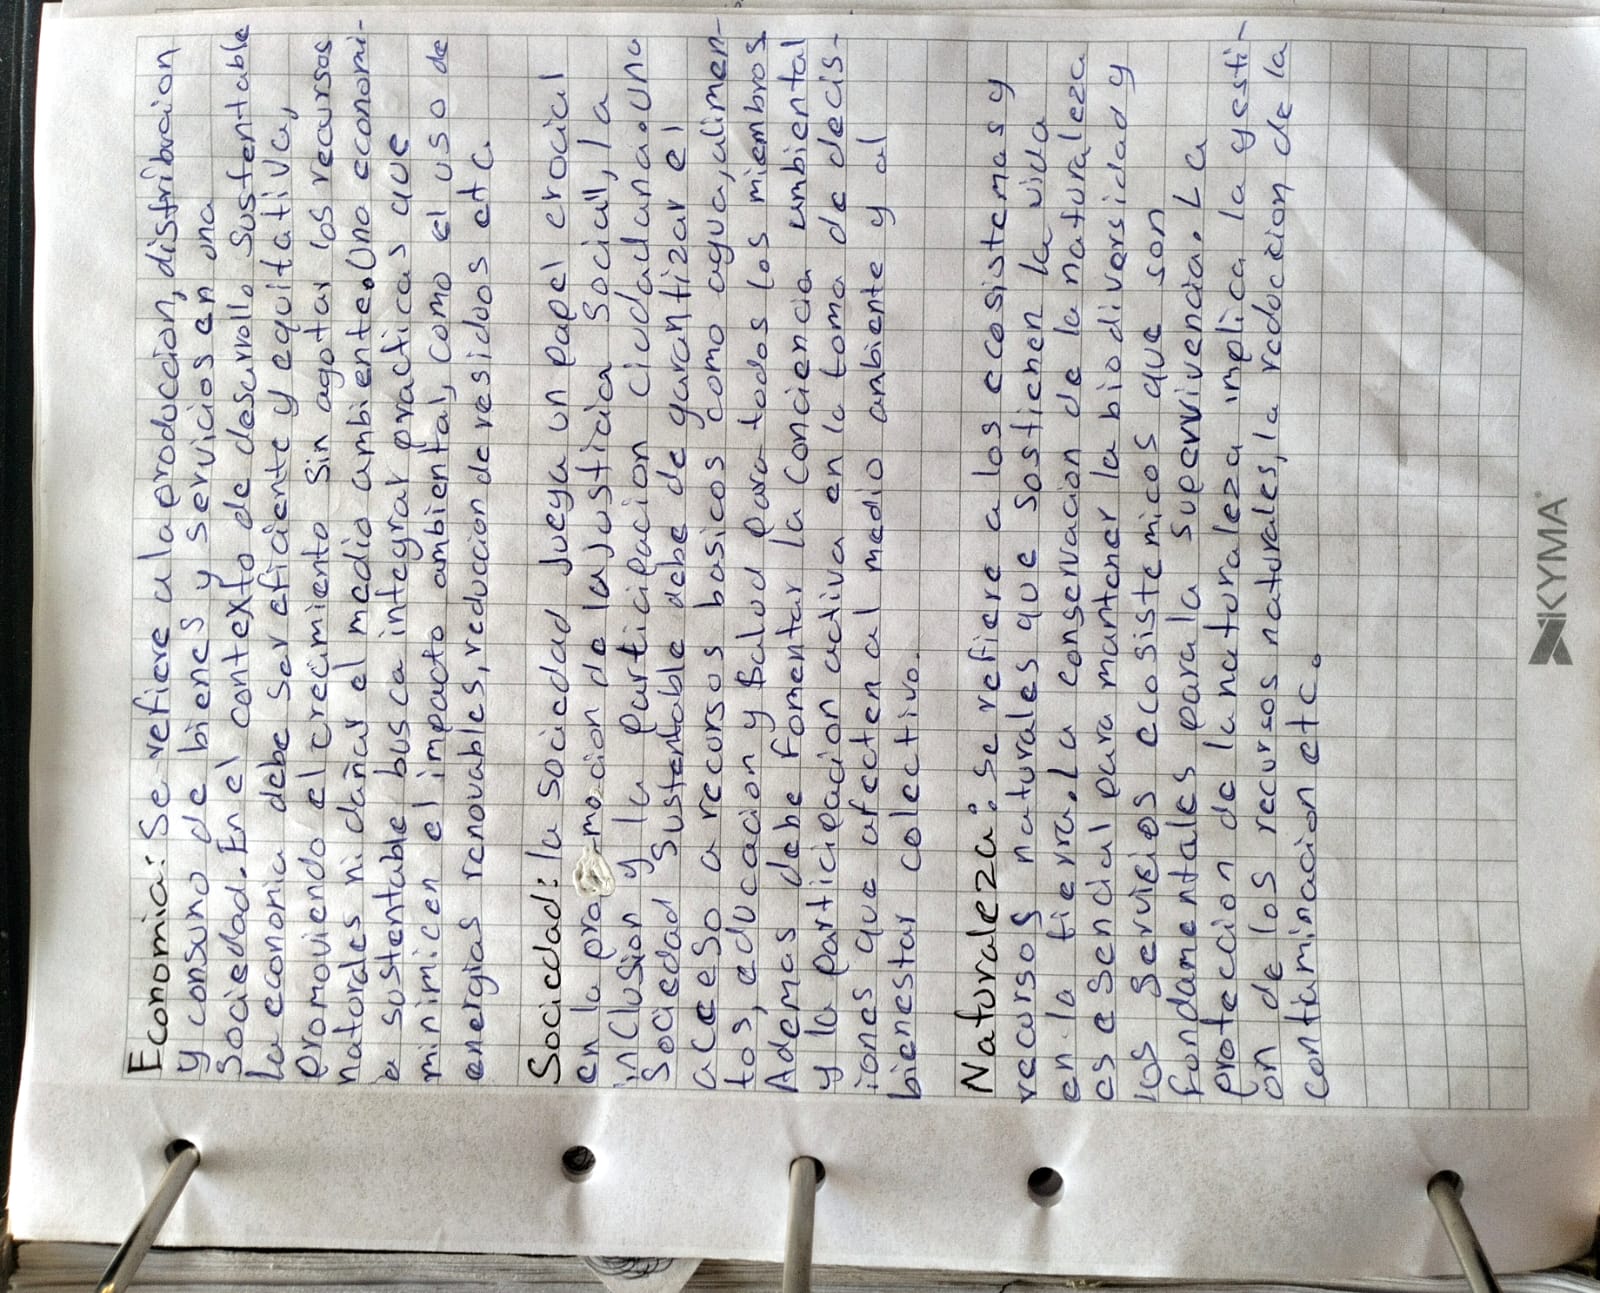 Economia: Se refiere a la produccion, distribucion
y consumo de bienes y servicios en una
Sociedad. En el contexto de desarrollo sustentable
la economia debe ser eficiente y equitativa,
promoviendo el crecimiento sin agotar los recursos
naturales ni dañar el medio ambiente. Una economi-
a sustentable busca integrar practicas que
minimicen el impacto ambiental, como el uso de
energias renovables, reduccion de residuos etc.
Sociedad: la sociedad Juega un papel crucial
en la pro-mocion de la Justicia Social, la
inclusion y la participacion ciudadana. una
Sociedad Sustentable debe de garantizar el
acceso a recursos basicos como agua, alimen-
tos, educacion y salud para todos los miembros
Ademas debe fomentar la conciencia ambiental
y la participacion activa en la toma de decis-
iones que afecten al medio ambiente y al
bienestar colectivo.
Naturaleza: se refiere a los ecosistemas y
recursos naturales que sostienen la vida
en la tierra. La conservacion de la naturaleza
es esencial para mantener la biodiversidad y
los servicios ecosistemicos que son
fundamentales para la supervivencia. La
proteccion de la naturaleza implica la gesti-
on de los recursos naturales, la reduccion de la
contaminacion etc.
KYMA